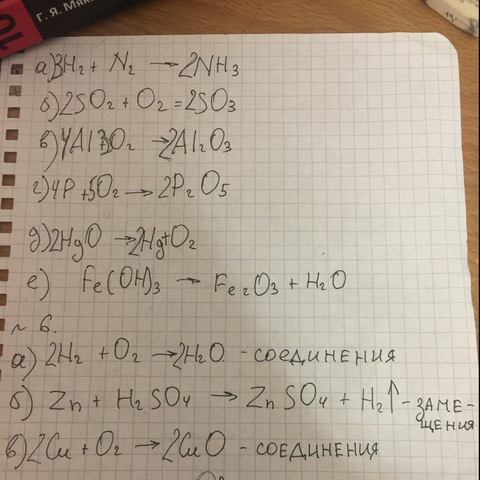 Г. Я. Мяк
а) 3H₂ + N₂ → 2NH₃
б) 2SO₂ + O₂ = 2SO₃
в) 4Al + 3O₂ → 2Al₂O₃
г) 4P + 5O₂ → 2P₂O₅
д) 2HgO → 2Hg + O₂
е) Fe(OH)₃ → Fe₂O₃ + H₂O
~ 6.
а) 2H₂ + O₂ → 2H₂O - соединения
б) Zn + H₂SO₄ → ZnSO₄ + H₂↑ - заме-
щения
в) 2Cu + O₂ → 2CuO - соединения